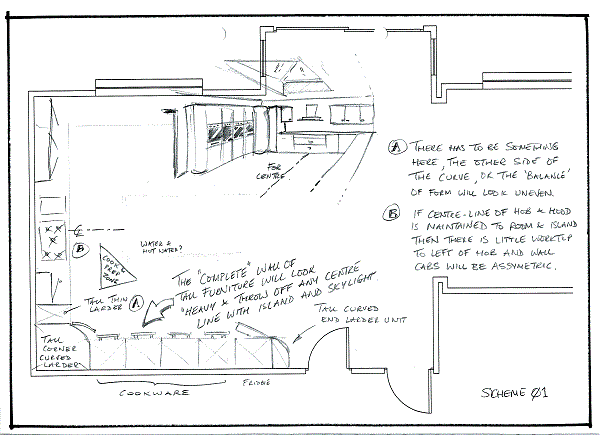 FOR
CENTRE.
Ⓐ THERE HAS TO BE SOMETHING
HERE, THE OTHER SIDE OF
THE CURVE, OR THE 'BALANCE'
OF FORM WILL LOOK UNEVEN.
Ⓑ IF CENTRE-LINE OF HOB & HOOD
IS MAINTAINED TO ROOM & ISLAND
THEN THERE IS LITTLE WORKTOP
TO LEFT OF HOB AND WALL
CABS WILL BE ASSYMETRIC.
Ⓑ
WATER &
HOT WATER?
COOK &
PREP
ZONE
THE "COMPLETE" WALL OF
TALL FURNITURE WILL LOOK
"HEAVY & THROW OFF ANY CENTRE
LINE WITH ISLAND AND SKYLIGHT
TALL THIN
LARDER
Ⓐ
TALL CURVED
END LARDER UNIT
TALL
CORNER
CURVED
LARDER
COOKWARE
FRIDGE
SCHEME 01